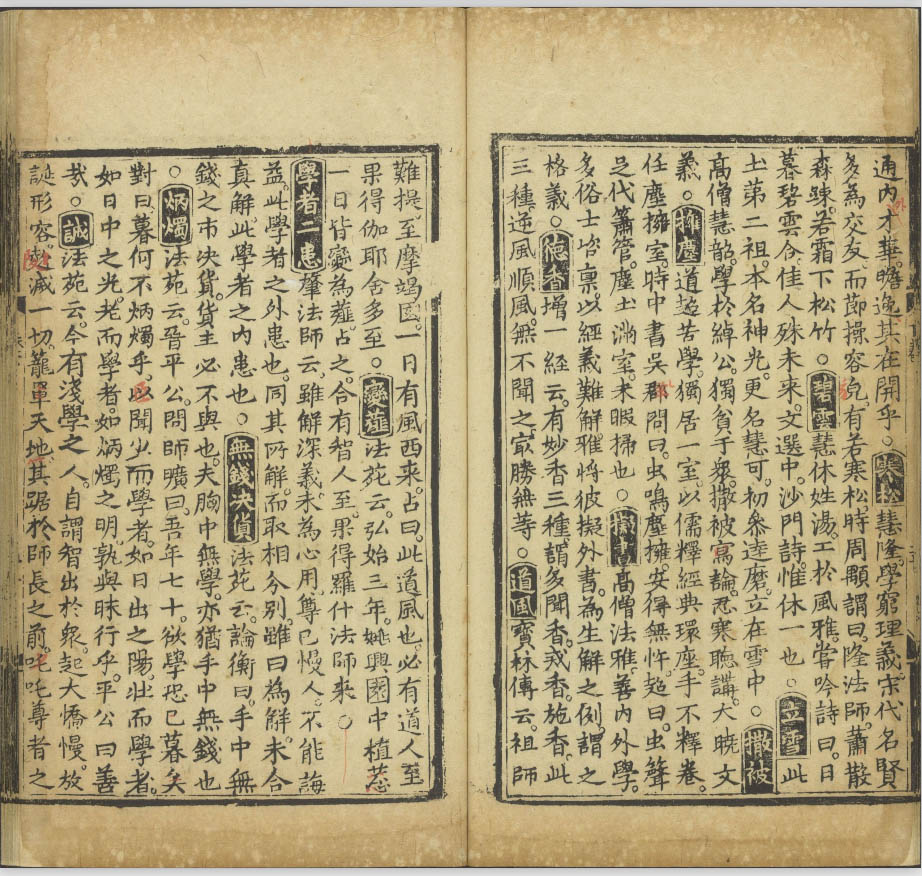 通內外才華贍逸其在開乎○寒松慧隆學窮理義宋代名賢
多為交友而節操容皃有若寒松時周顒謂曰隆法師蕭散
森踈若霜下松竹○碧雲慧休姓湯工於風雅甞吟詩曰日
暮碧雲合佳人殊未來文選中沙門詩惟休一也○立雪此
土第二祖本名神光更名慧可初叅達磨立在雪中○撒被
高僧慧韶學於綽公獨貧于衆撒被寫論忍寒聽講大曉文
義○擁塵道超苦學獨居一室以儒釋經典環座手不釋卷
任塵擁室時中書吳郡問曰虫鳴塵擁安得無忤超曰虫聲
足代簫管塵土滿室未暇掃也○撒書高僧法雅善內外學
多俗士咨禀以經義難解雅將彼擬外書為生解之例謂之
格義○德香增一經云有妙香三種謂多聞香戒香施香此
三種逆風順風無不聞之㝡勝無等○道風寳林傳云祖師
難提至摩竭國一日有風西來占曰此道風也必有道人至
果得伽耶舍多至○變薤法苑云弘始三年姚興園中植葱
一日皆變為薤占之合有智人至果得羅什法師來○
學者二患肇法師云雖解深義未為心用尊己慢人不能誨
益此學者之外患也同其所解而取相分別雖曰為解未合
真解此學者之內患也○無錢決貨法苑云論衡曰手中無
錢之市決貨貨主必不與也夫胸中無學亦猶手中無錢也
○炳燭法苑云晉平公問師曠曰吾年七十欲學恐已暮矣
對曰暮何不炳燭乎臣聞少而學者如日出之陽壯而學者
如日中之光老而學者如炳燭之明孰與昧行乎平公曰善
哉○誡法苑云今有淺學之人自謂智出於衆起大憍慢放
誕形容滅一切籠罩天地其踞於師長之前叱吒尊者之